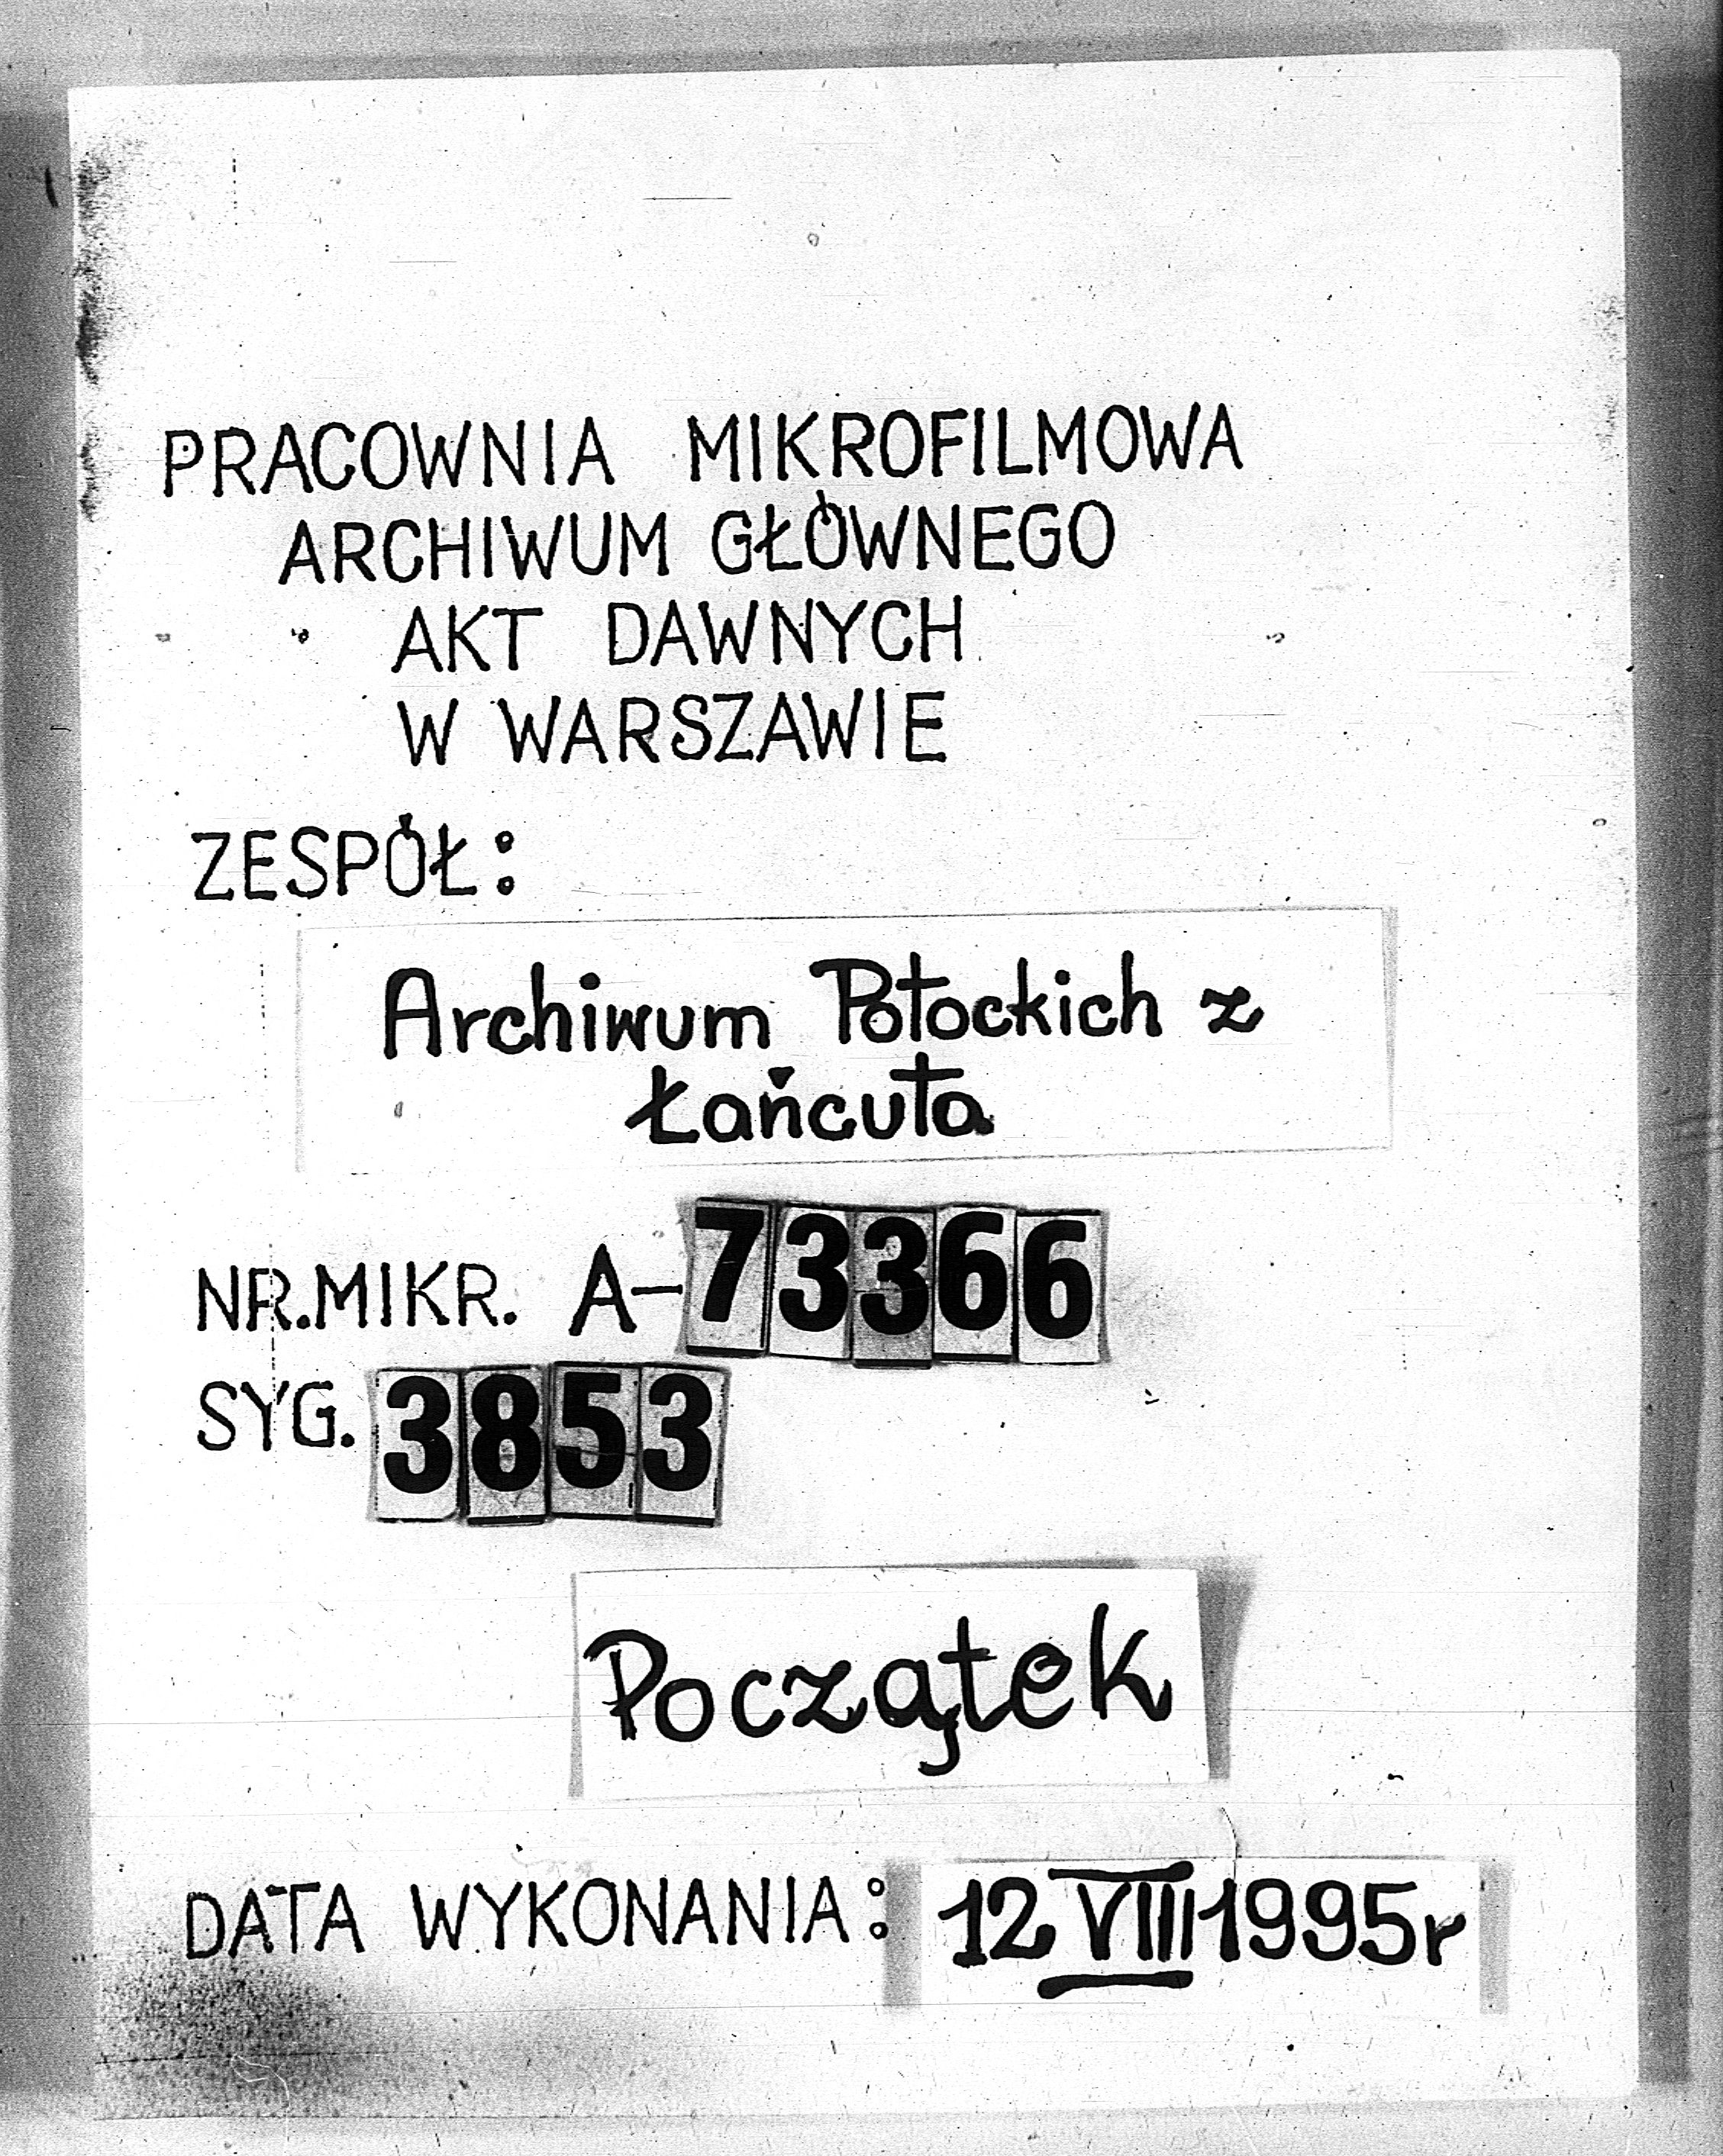 PRACOWNIA MIKROFILMOWA
ARCHIWUM GŁÓWNEGO
AKT DAWNYCH
W WARSZAWIE
ZESPÓŁ:
Archiwum Potockich z
Łańcuta
NR.MIKR. A-73366
SYG. 3853
Początek
DATA WYKONANIA: 12 VIII 1995r